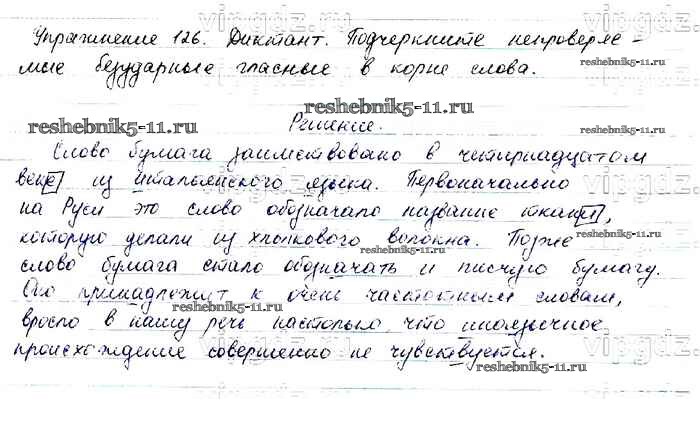 Упражнение 126. Диктант. Подчеркните непроверяе-
мые безударные гласные в корне слова.
Решение.
Слово бумага заимствовано в четырнадцатом
веке из итальянского языка. Первоначально
на Руси это слово обозначало название ткани,
которую делали из хлопкового волокна. Позже
слово бумага стало обозначать и писчую бумагу.
Оно принадлежит к очень частотным словам,
вросло в нашу речь настолько, что иноязычное
происхождение совершенно не чувствуется.
vipgdz.
reshebnik5-11.ru
reshebnik5-11.ru
reshebnik5-11.ru
reshebnik5-11.ru
vipgdz.
reshebnik5-11.ru
reshebnik5-11.ru
vipgdz.
reshebnik5-11.ru